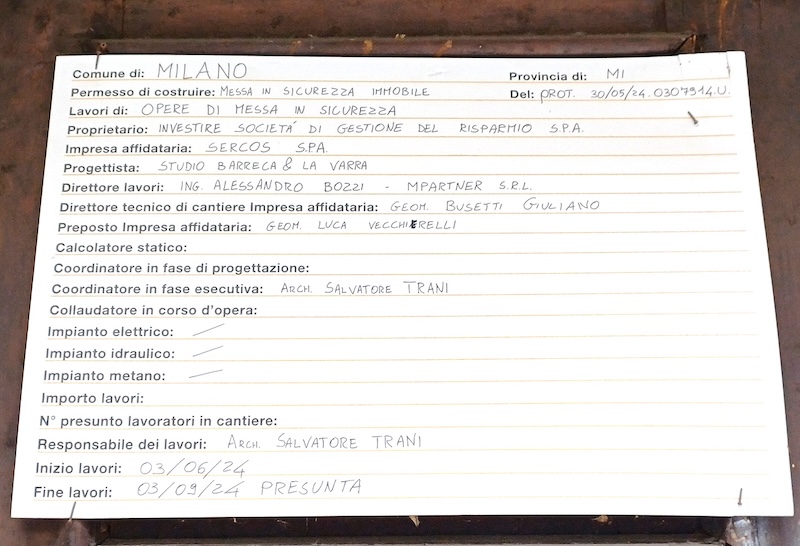 Comune di: MILANO Provincia di: MI
Permesso di costruire: MESSA IN SICUREZZA IMMOBILE Del: PROT. 30/05/24.0307914.U.
Lavori di: OPERE DI MESSA IN SICUREZZA
Proprietario: INVESTIRE SOCIETÀ DI GESTIONE DEL RISPARMIO S.P.A.
Impresa affidataria: SERCOS S.P.A.
Progettista: STUDIO BARRECA & LA VARRA
Direttore lavori: ING. ALESSANDRO BOZZI - MPARTNER S.R.L.
Direttore tecnico di cantiere Impresa affidataria: GEOM. BUSETTI GIULIANO
Preposto Impresa affidataria: GEOM. LUCA VECCHIERELLI
Calcolatore statico:
Coordinatore in fase di progettazione:
Coordinatore in fase esecutiva: ARCH. SALVATORE TRANI
Collaudatore in corso d'opera:
Impianto elettrico: /
Impianto idraulico: /
Impianto metano: /
Importo lavori:
N° presunto lavoratori in cantiere:
Responsabile dei lavori: ARCH. SALVATORE TRANI
Inizio lavori: 03/06/24
Fine lavori: 03/09/24 PRESUNTA